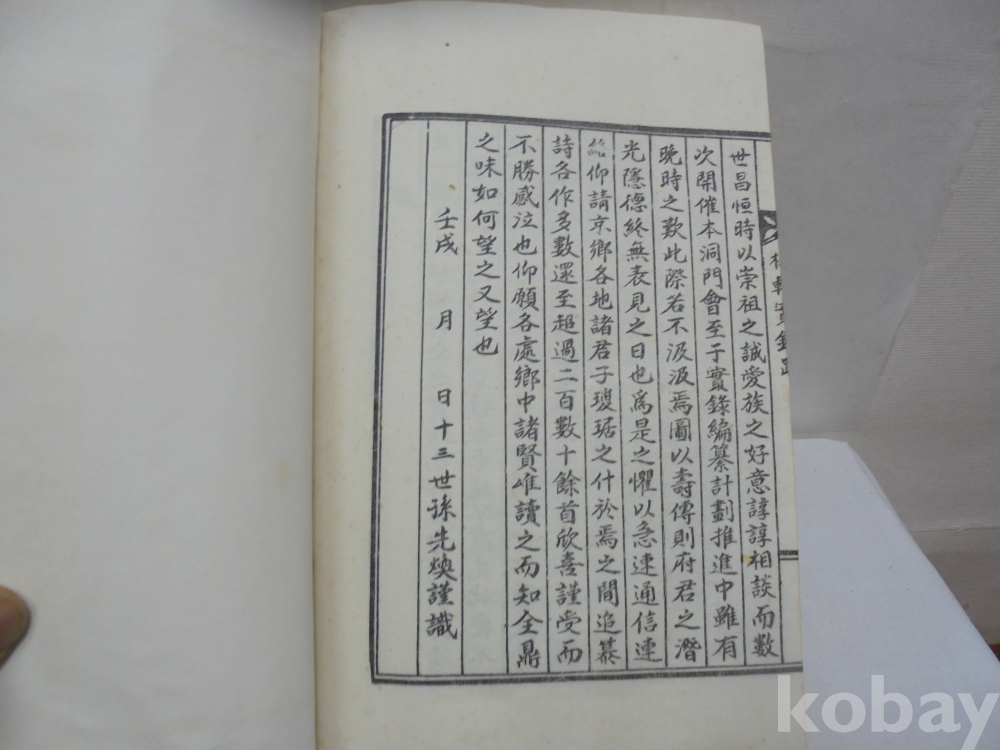 世昌恒時以崇祖之誠愛族之好意諄諄相談而數
次開催本洞門會至于實錄編纂計劃推進中雖有
晩時之歎此際若不汲汲焉圖以壽傳則府君之潛
光隱德終無表見之日也爲是之懼以急速通信連
絡仰請京鄕各地諸君子瓊琚之什於焉之間追慕
詩各作多數還至超過二百數十餘首欣喜謹受而
不勝感泣也仰願各處鄕中諸賢唯讀之而知全鼎
之味如何望之又望也
壬戌 月 日十三世孫先煥謹識
kobay